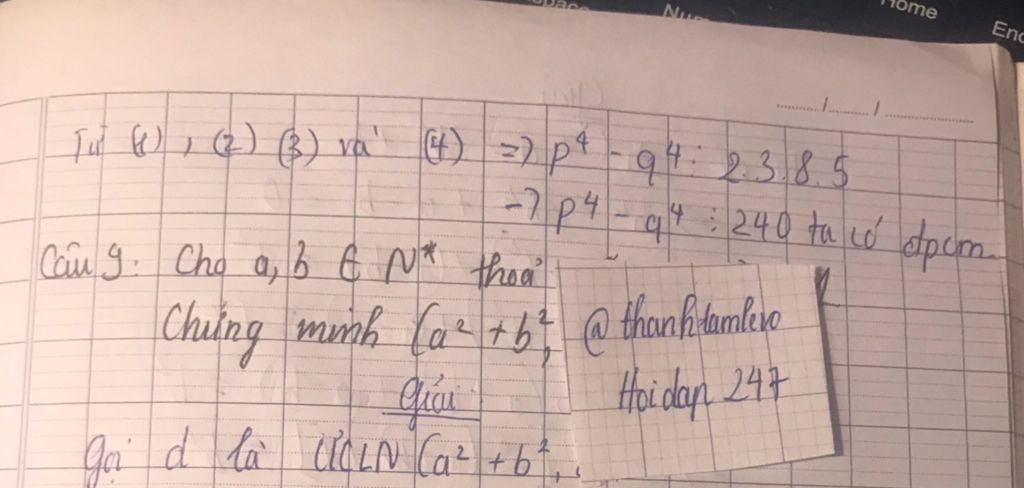 Home
End
Từ (1), (2) (3) và (4) => p⁴ - q⁴ ⋮ 2.3.8.5
-> p⁴ - q⁴ ⋮ 240 ta có đpcm
Câu 9: Cho a, b ∈ N* thoả
Chứng minh (a² + b²,
Giải
Gọi d là ƯCLN (a² + b²,
@thanhtamlevo
Hoidap 247